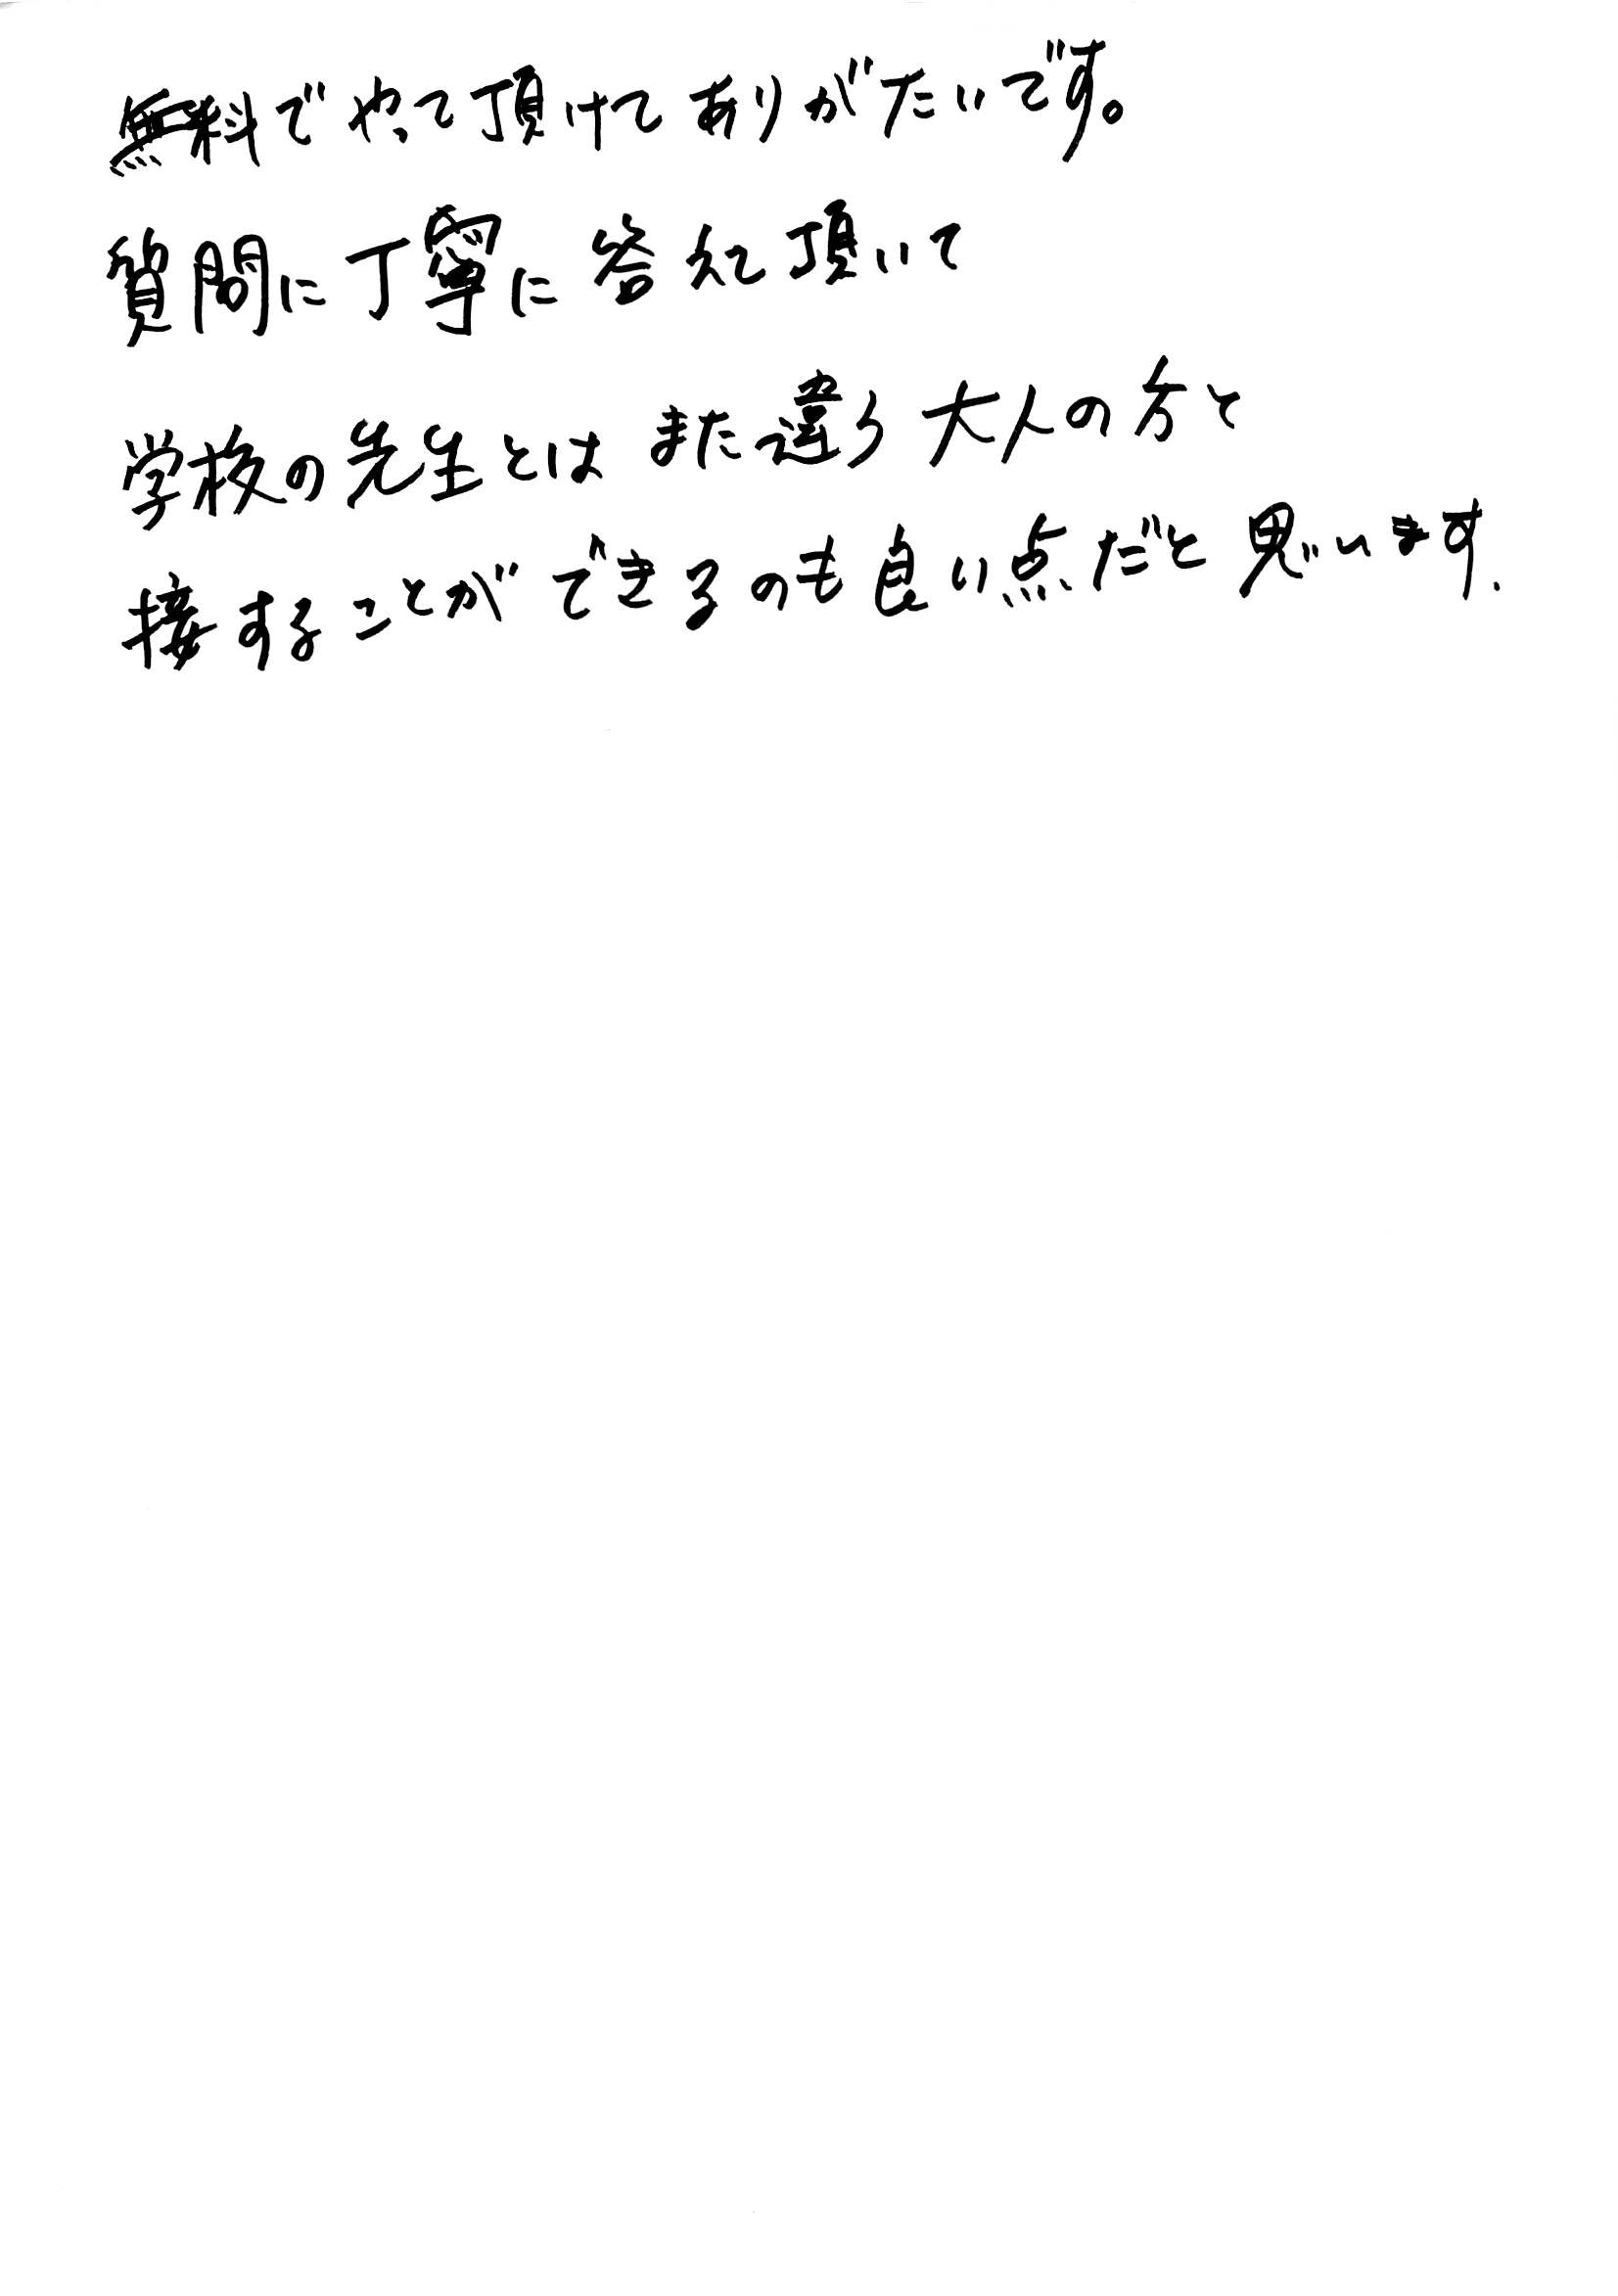 無料でやって頂けてありがたいです。
質問に丁寧に答えて頂いて
学校の先生とはまた違う大人の方と
接することができるのも良い点だと思います.